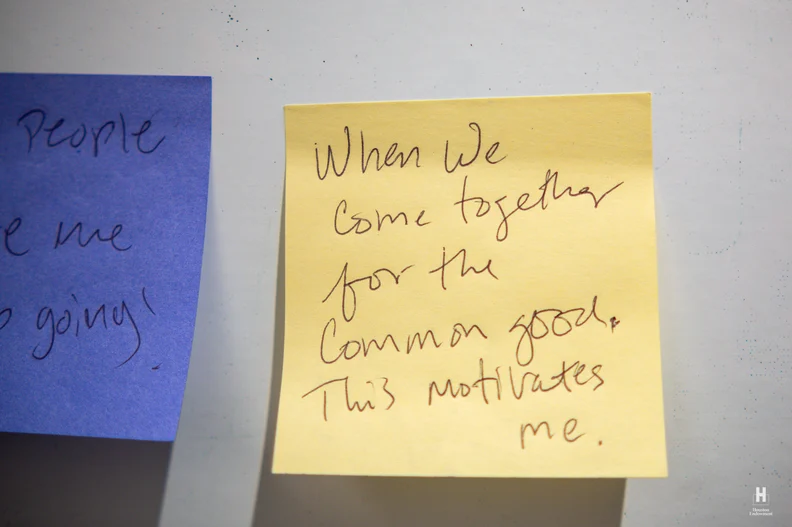 People
e me
going!
When We
Come together
for the
Common good.
This motivates
me.
H
Houston
Endowment